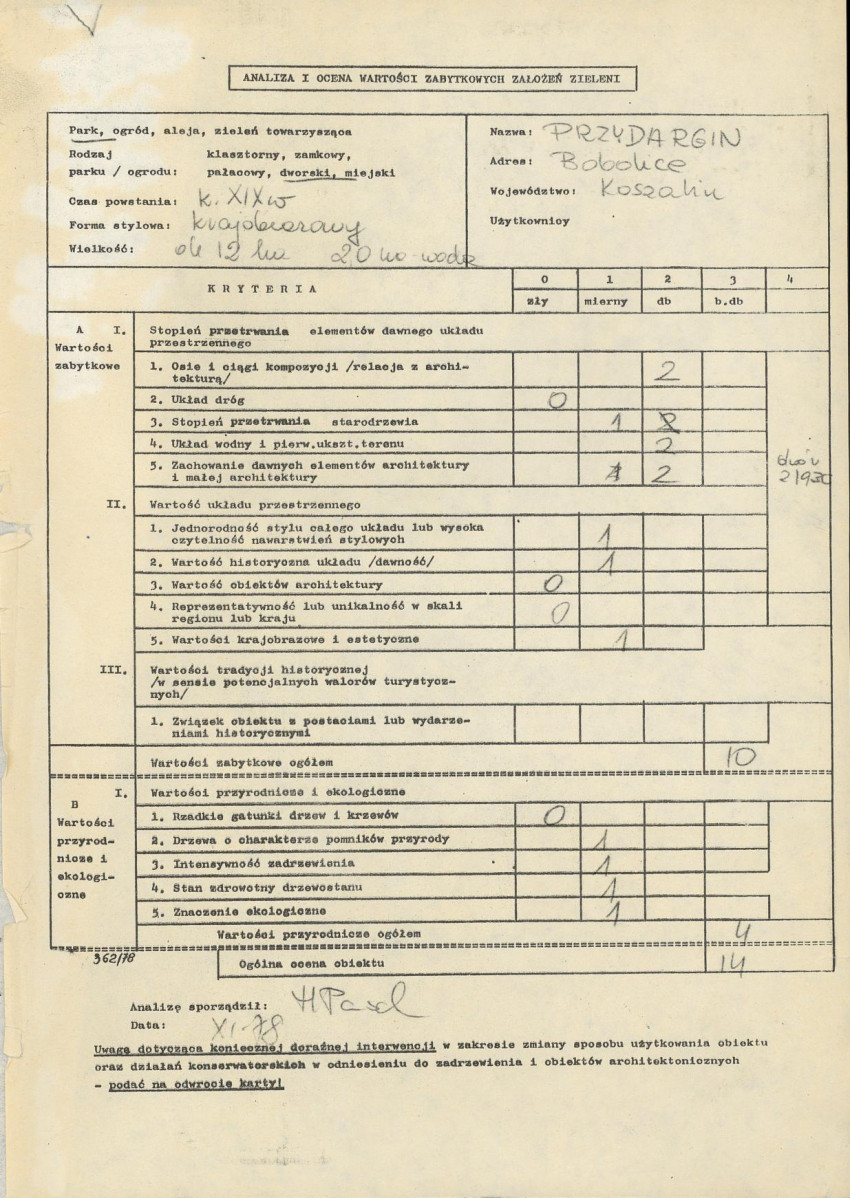 ANALIZA I OCENA WARTOŚCI ZABYTKOWYCH ZAŁOŻEŃ ZIELENI
Park, ogród, aleja, zieleń towarzysząca
Rodzaj klasztorny, zamkowy,
parku / ogrodu: pałacowy, dworski, miejski
Czas powstania: k. XIX w
Forma stylowa: krajobrazowy
Wielkość: ok 12 ha 2,0 ha - woda
Nazwa: PRZYDARGIN
Adres: Bobolice
Województwo: Koszalin
Użytkownicy
KRYTERIA 0 1 2 3 4
zły mierny db b.db
A I. Stopień przetrwania elementów dawnego układu
Wartości przestrzennego
zabytkowe
1. Osie i ciągi kompozycji /relacja z archi- 2
tekturą/
2. Układ dróg 0
3. Stopień przetrwania starodrzewia 1 2
4. Układ wodny i pierw.ukszt.terenu 2
5. Zachowanie dawnych elementów architektury 1 2
i małej architektury
dwór
z 1930
II. Wartość układu przestrzennego
1. Jednorodność stylu całego układu lub wysoka 1
czytelność nawarstwień stylowych
2. Wartość historyczna układu /dawność/ 1
3. Wartość obiektów architektury 0
4. Reprezentatywność lub unikalność w skali 0
regionu lub kraju
5. Wartości krajobrazowe i estetyczne 1
III. Wartości tradycji historycznej
/w sensie potencjalnych walorów turystycz-
nych/
1. Związek obiektu z postaciami lub wydarze-
niami historycznymi
Wartości zabytkowe ogółem 10
I. Wartości przyrodnicze i ekologiczne
B
Wartości
przyrod-
nicze i
ekologi-
czne
1. Rzadkie gatunki drzew i krzewów 0
2. Drzewa o charakterze pomników przyrody 1
3. Intensywność zadrzewienia 1
4. Stan zdrowotny drzewostanu 1
5. Znaczenie ekologiczne 1
Wartości przyrodnicze ogółem 4
362/78
Ogólna ocena obiektu 14
Analizę sporządził: H Pasel
Data: XI-78
Uwagę dotyczącą koniecznej doraźnej interwencji w zakresie zmiany sposobu użytkowania obiektu
oraz działań konserwatorskich w odniesieniu do zadrzewienia i obiektów architektonicznych
- podać na odwrocie karty!